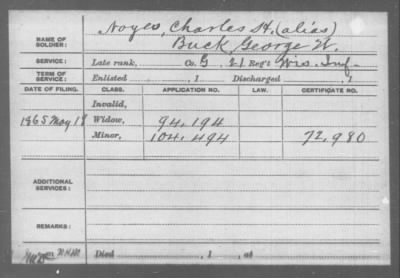 NAME OF SOLDIER: Noyes, Charles H. (alias)
Buck, George W.
SERVICE: Late rank, Co. G, 21 Reg't Wis. Inf.
TERM OF SERVICE: Enlisted , 1 Discharged , 1
DATE OF FILING. CLASS. APPLICATION NO. LAW. CERTIFICATE NO.
Invalid,
1865 May 18 Widow, 94,194
Minor, 104,494 72,980
ADDITIONAL SERVICES:
REMARKS:
Died , 1 , at